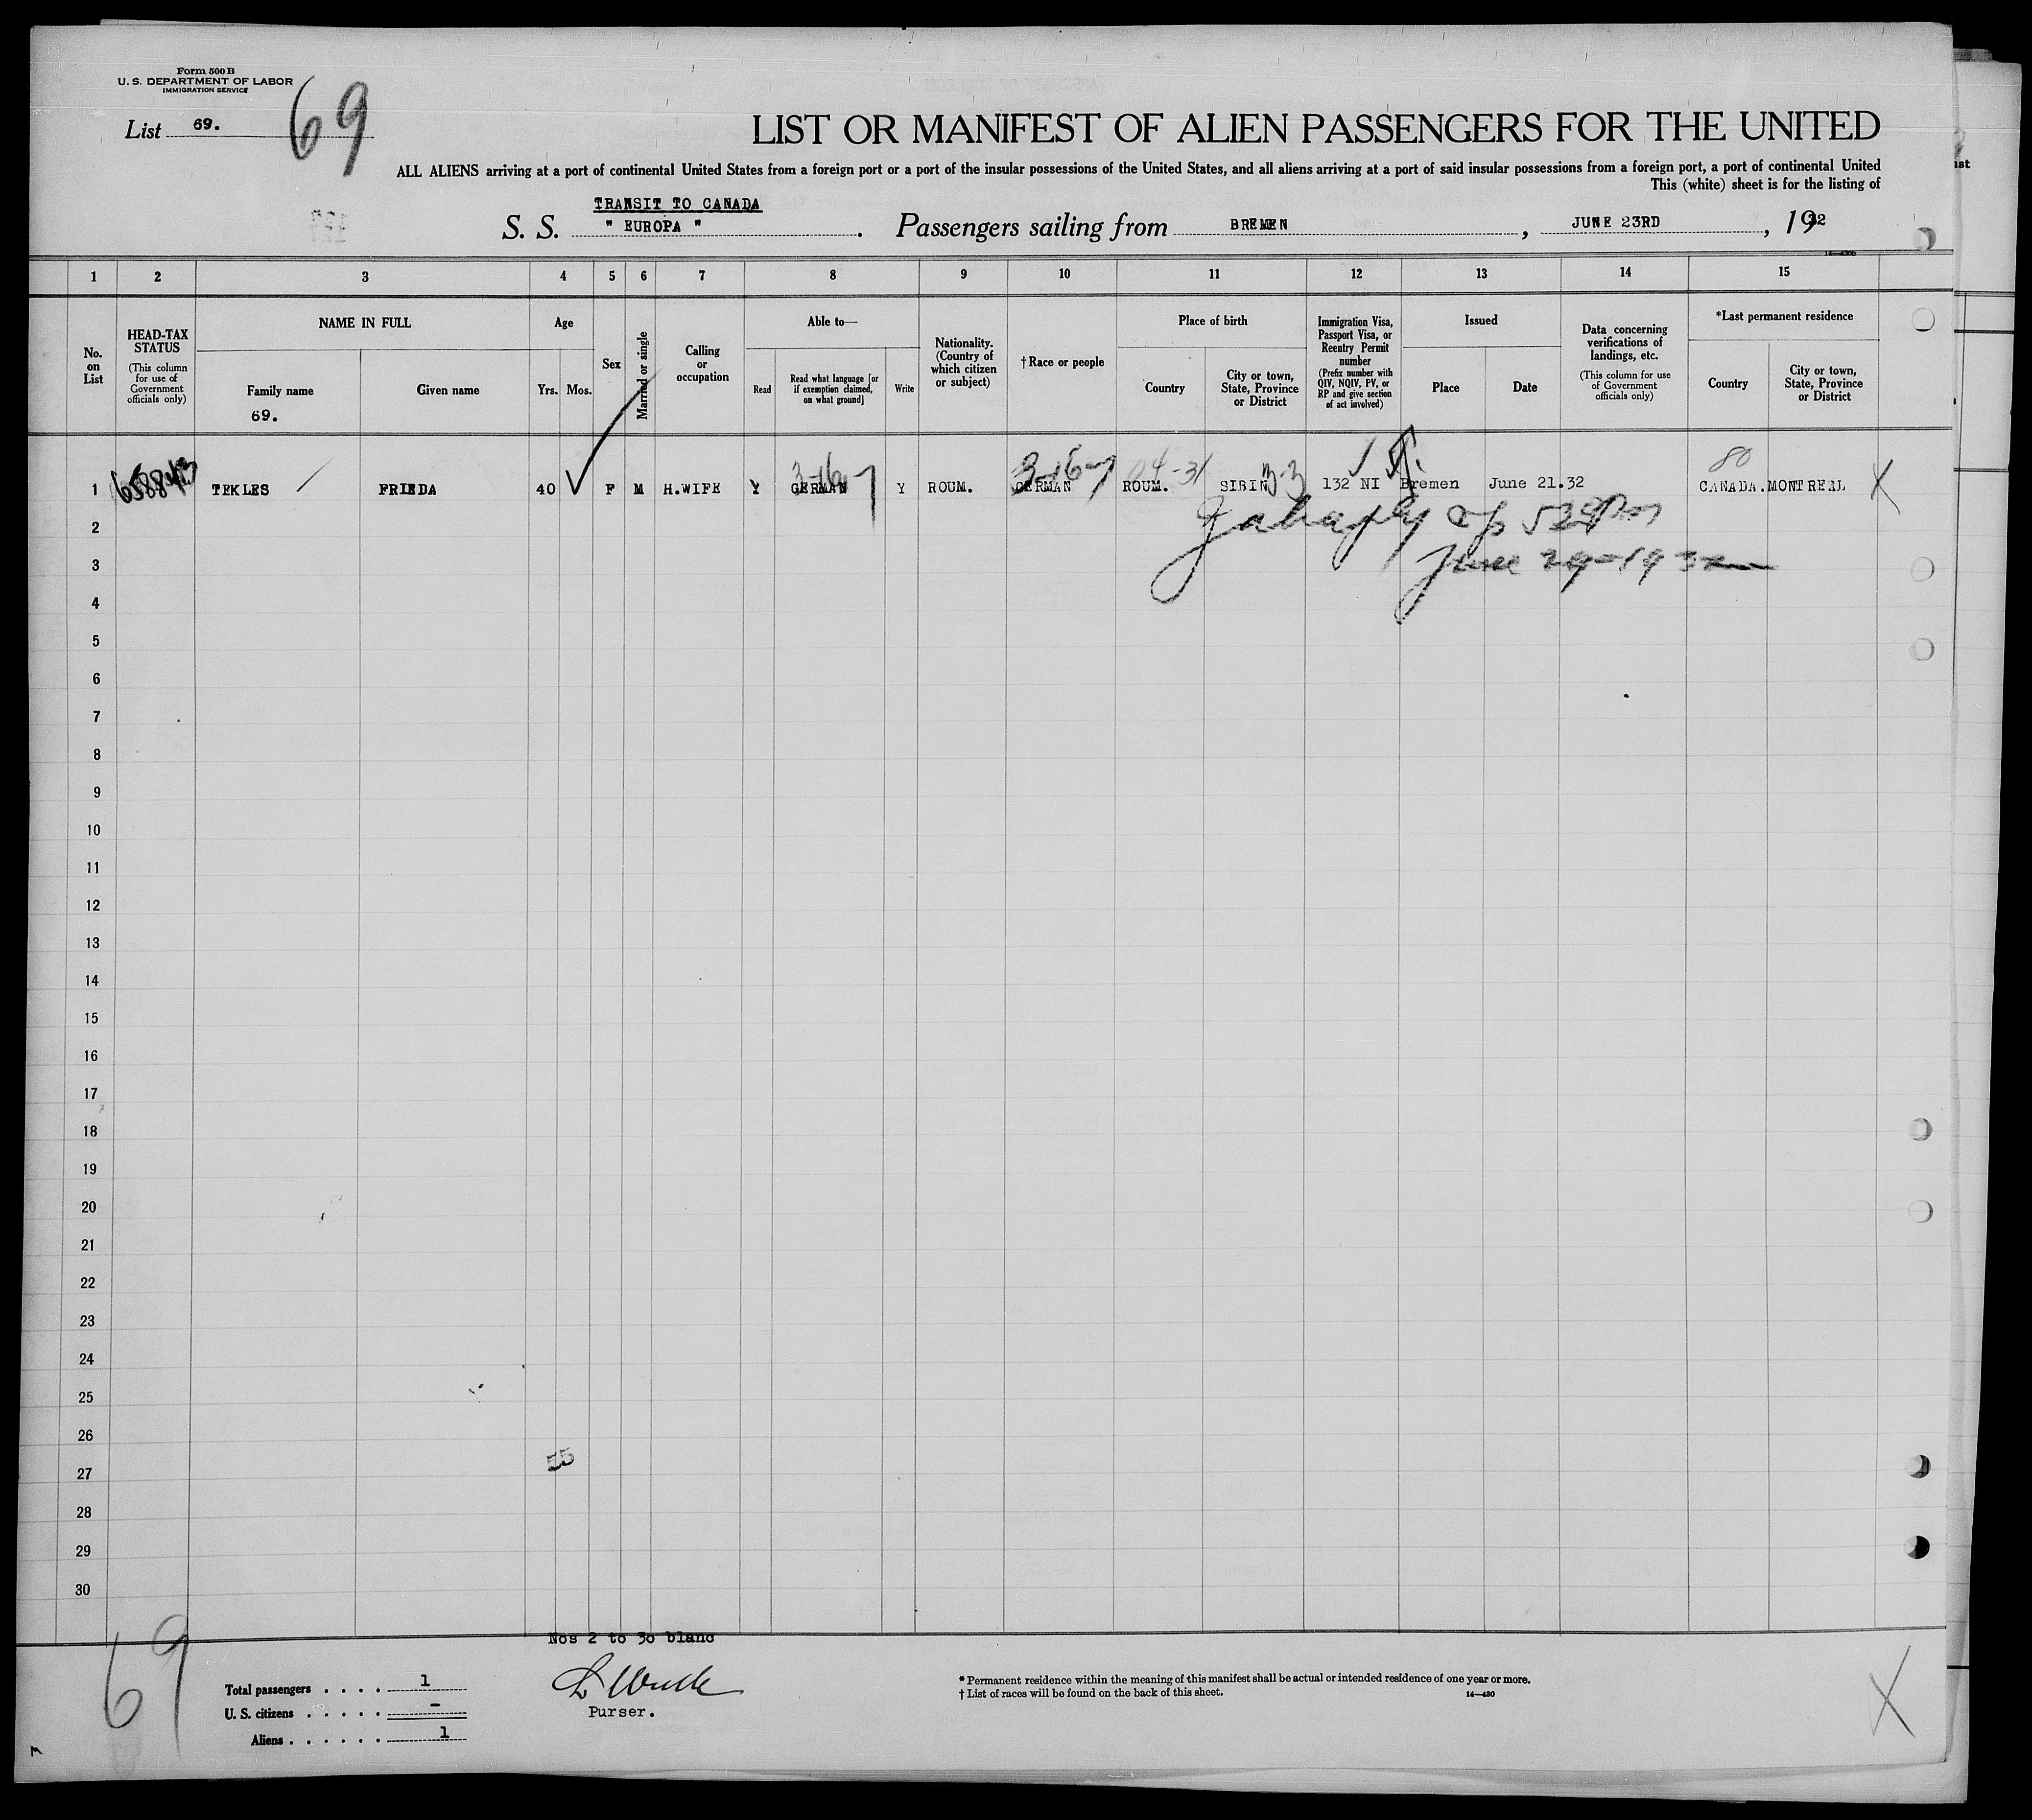 Form 500 B
U. S. DEPARTMENT OF LABOR
IMMIGRATION SERVICE
List 69. 69
LIST OR MANIFEST OF ALIEN PASSENGERS FOR THE UNITED
ALL ALIENS arriving at a port of continental United States from a foreign port or a port of the insular possessions of the United States, and all aliens arriving at a port of said insular possessions from a foreign port, a port of continental United
This (white) sheet is for the listing of
TRANSIT TO CANADA
S. S. " EUROPA ". Passengers sailing from BREMEN, JUNE 23RD, 1932
1 2 3 4 5 6 7 8 9 10 11 12 13 14 15
No. on List
HEAD-TAX STATUS
(This column for use of Government officials only)
NAME IN FULL
Family name
69.
Given name
Age
Yrs. Mos.
Sex
Married or single
Calling or occupation
Able to—
Read
Read what language [or if exemption claimed, on what ground]
Write
Nationality. (Country of which citizen or subject)
† Race or people
Place of birth
Country
City or town, State, Province or District
Immigration Visa, Passport Visa, or Reentry Permit number
(Prefix number with QIV, NQIV, PV, or RP and give section of act involved)
Issued
Place
Date
Data concerning verifications of landings, etc.
(This column for use of Government officials only)
*Last permanent residence
Country
City or town, State, Province or District
3-16-7 80
1 TEKLES FRIEDA 40 F M H.WIFE Y GERMAN Y ROUM. GERMAN ROUM. SIBIN 132 NI Bremen June 21.32 CANADA. MONTREAL X
2
3 June 29-1932
4
5
6
7
8
9
10
11
12
13
14
15
16
17
18
19
20
21
22
23
24
25
26
55
27
28
29
30
Nos 2 to 30 blanc
69
Total passengers . . . . 1
U. S. citizens . . . . . –
Aliens . . . . . . 1
Purser.
* Permanent residence within the meaning of this manifest shall be actual or intended residence of one year or more.
† List of races will be found on the back of this sheet.
14—430
X